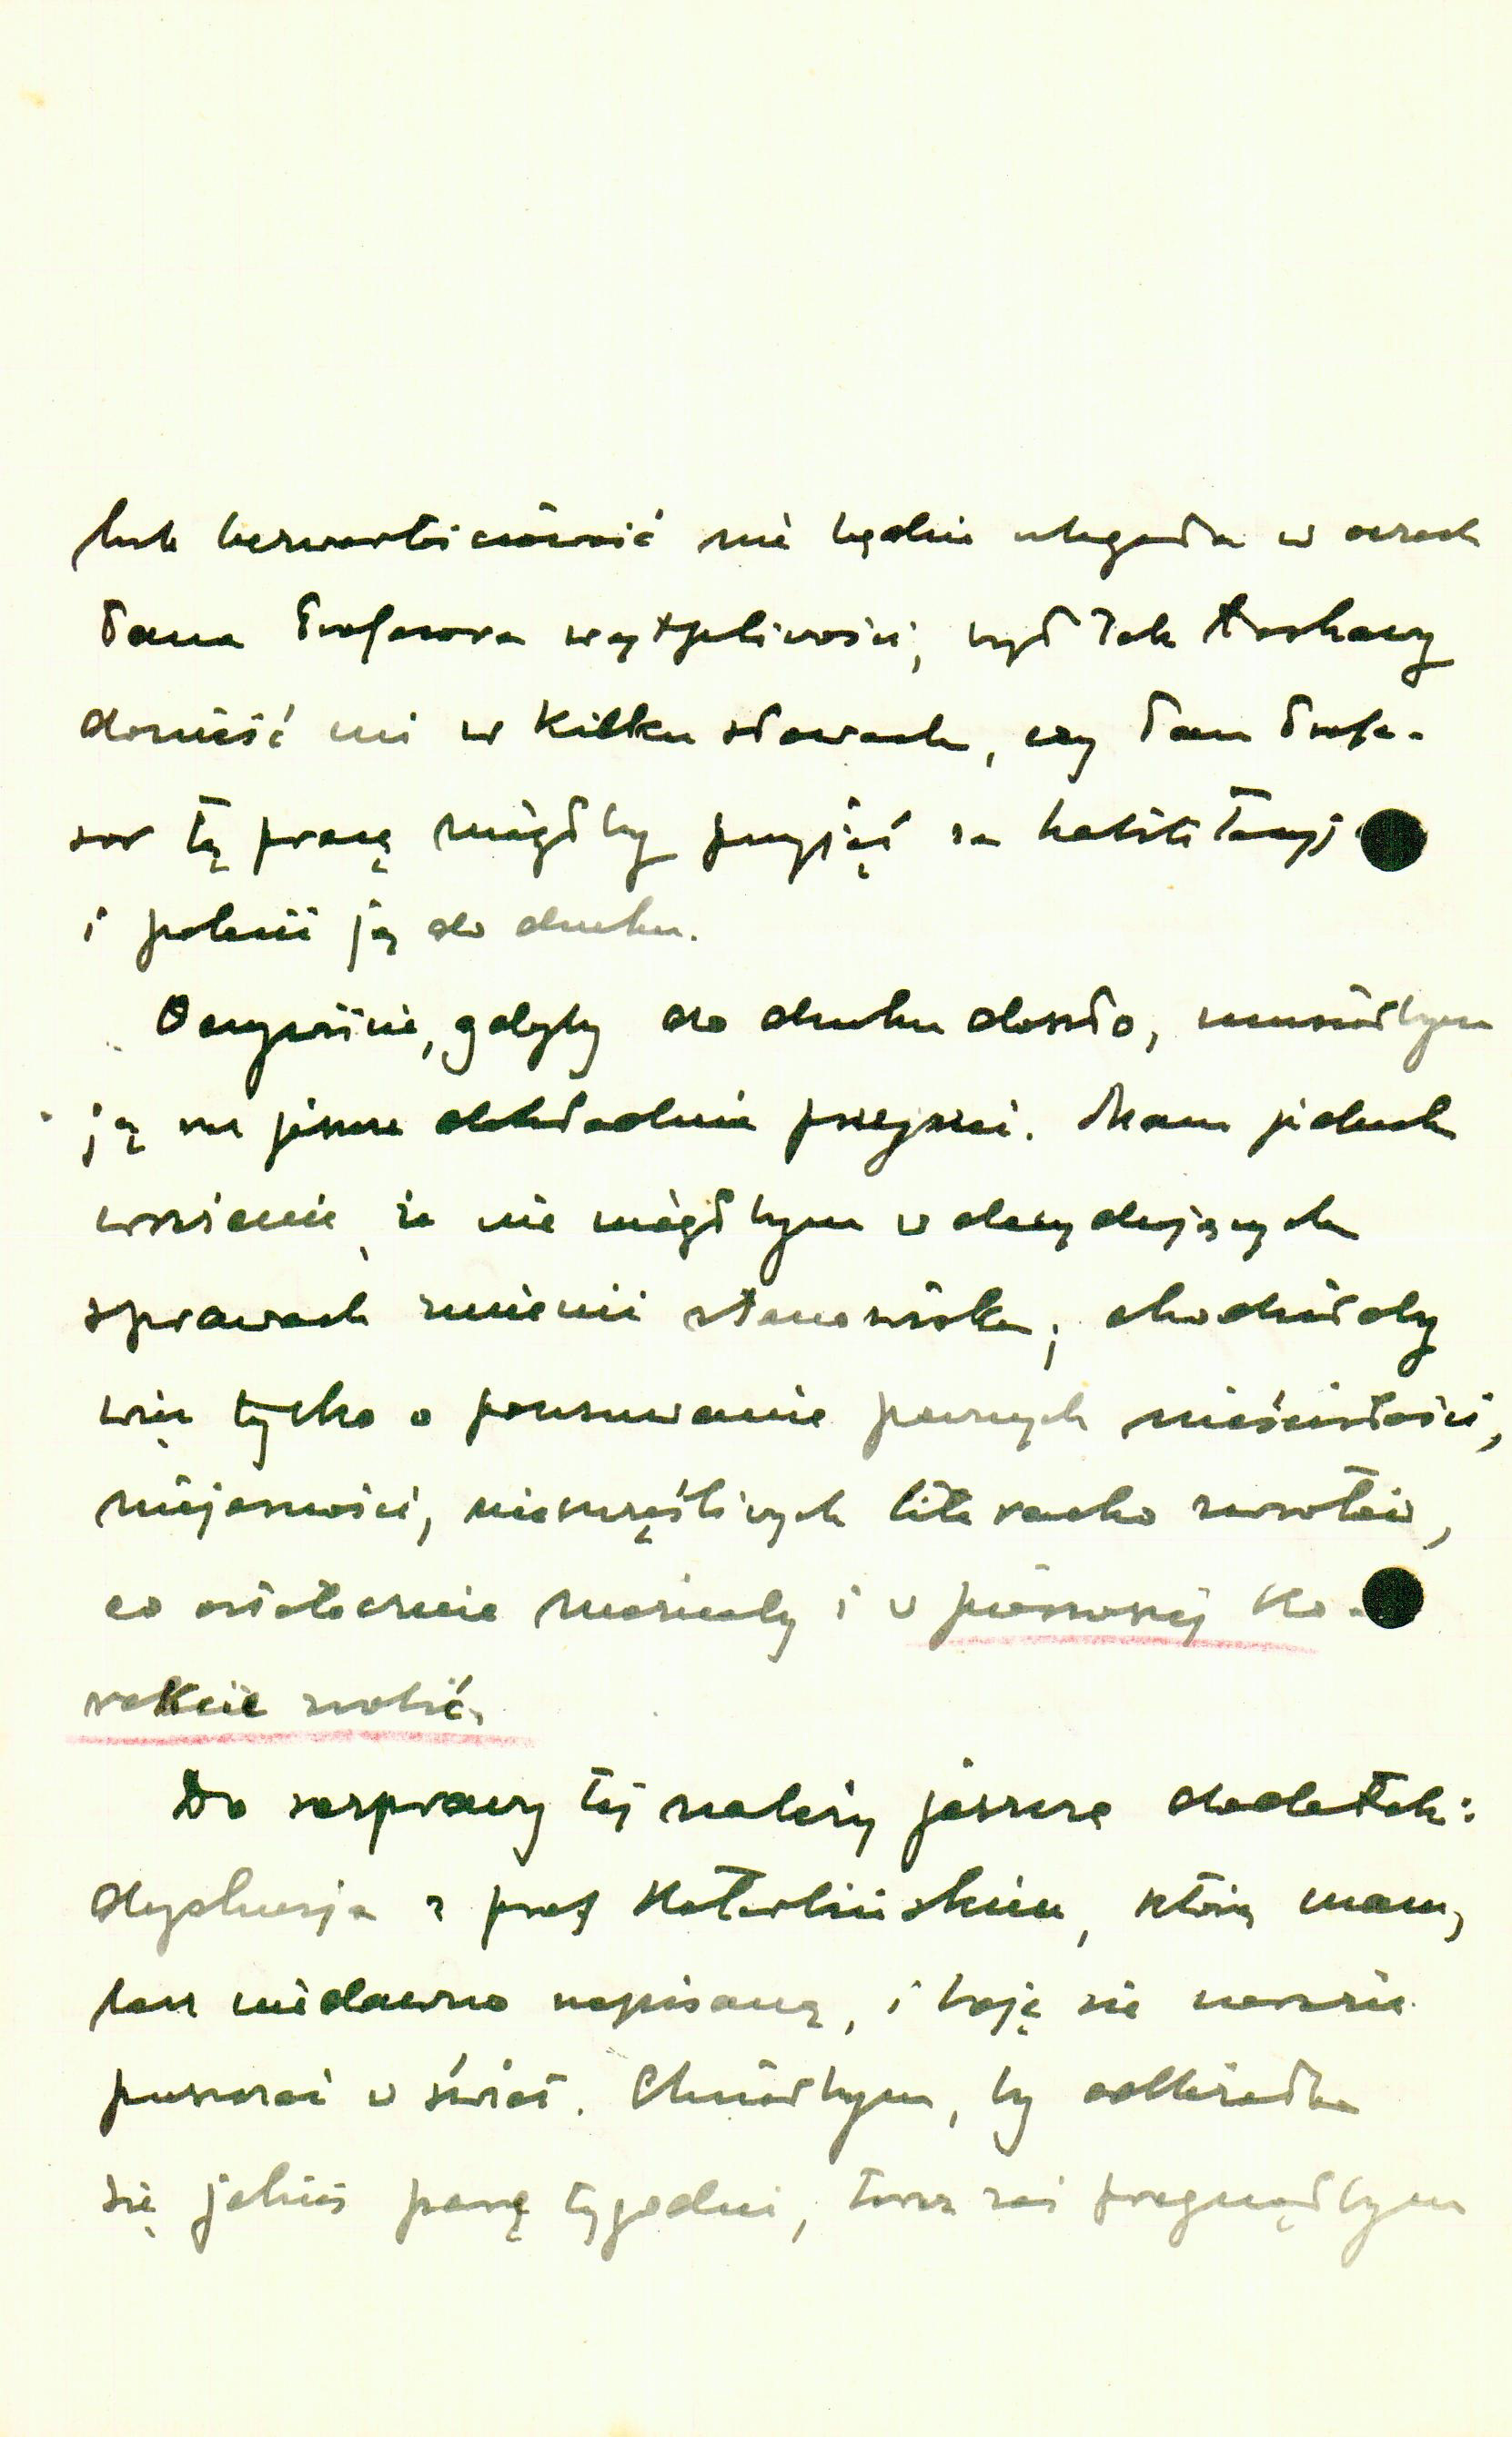 lub bezwartościowość nie będzie ulegała w oczach
Pana Profesora wątpliwości, był tak łaskawy
donieść mi w kilku słowach, czy Pan Profe-
sor tę pracę mógłby przyjąć za habilitacyj
i polecić ją do druku.
Oczywiście, gdyby do druku doszło, musiałbym
ją raz jeszcze dokładnie przejrzeć. Mam jednak
wrażenie, że nie mógłbym w decydujących
sprawach zmienić stanowiska; chodziłoby
więc tylko o pousuwanie pewnych nieścisłości,
niejasności, nieszczęśliwych literacko zwrotów,
co ostatecznie możnaby i w pierwszej ko-
rekcie zrobić.
Do rozprawy tej należy jeszcze dodatek:
dyskusja z prof Kotarbińskim, którą mam,
lecz niedawno napisaną, i boję się narazie
puszczać w świat. Chciałbym, by odleżała
się jakieś parę tygodni, teraz zaś pragnąłbym